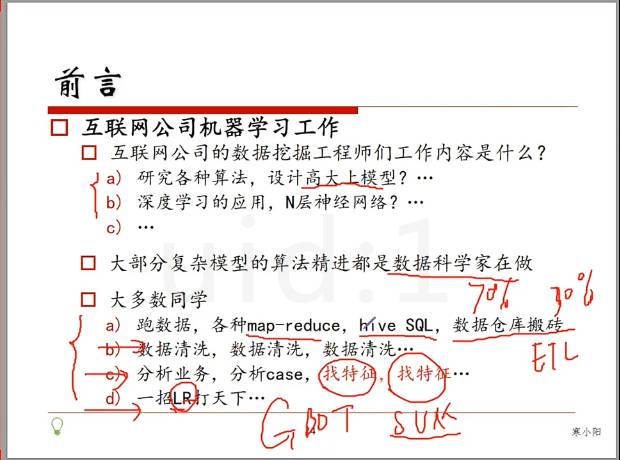 前言
互联网公司机器学习工作
互联网公司的数据挖掘工程师们工作内容是什么？
a) 研究各种算法，设计高大上模型？…
b) 深度学习的应用，N层神经网络？…
c) …
大部分复杂模型的算法精进都是数据科学家在做
70% 30%
大多数同学
a) 跑数据，各种map-reduce，hive SQL，数据仓库搬砖
ETL
b) 数据清洗，数据清洗，数据清洗…
c) 分析业务，分析case，找特征，找特征…
d) 一招LR打天下…
GBDT
uid:1
寒小阳